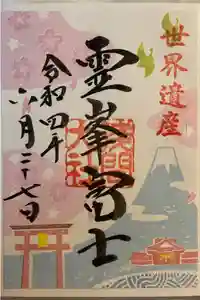 世界遺産
霊峯富士
令和四年
六月二十七日